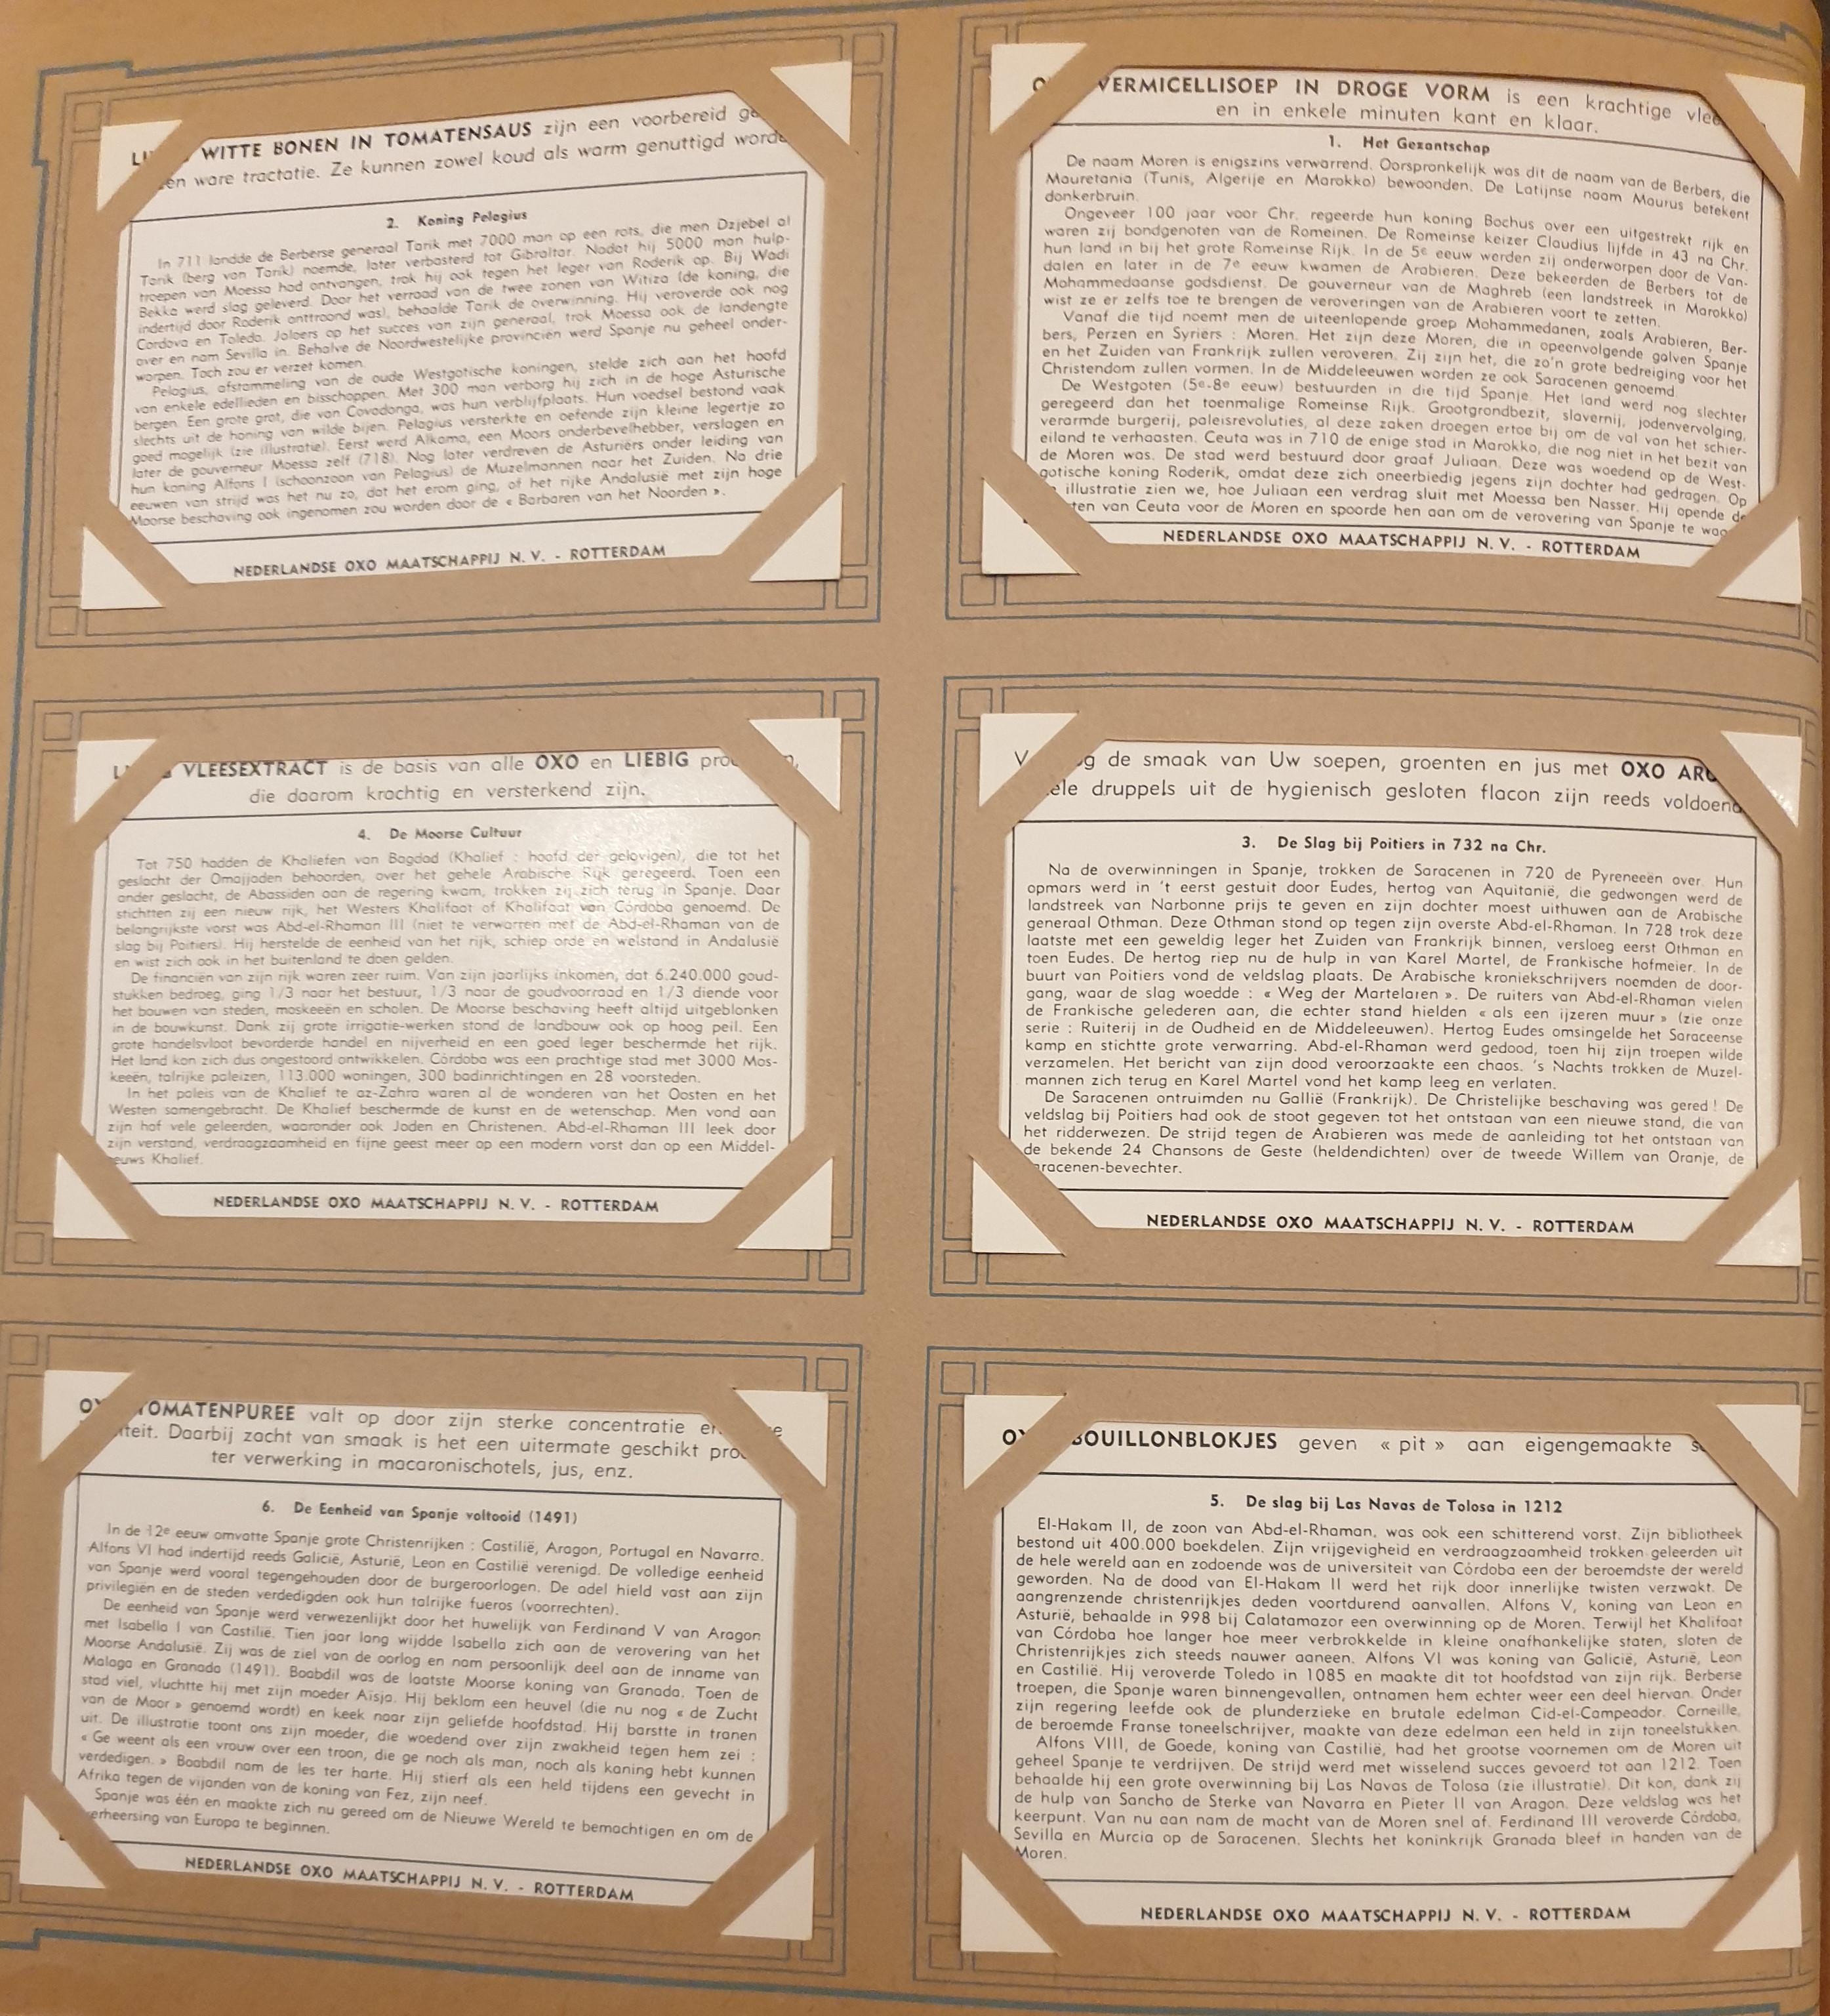 WITTE BONEN IN TOMATENSAUS zijn een voorbereid
ware tractatie. Ze kunnen zowel koud als warm genuttigd
2. Koning Pelagius
In 711 landde de Berberse generaal Tarik met 7000 man op een rots, die men Dzjebel al
Tarik (berg van Tarik) noemde, later verbasterd tot Gibraltar. Nadat hij 5000 man hulp-
troepen van Moessa had ontvangen, trok hij ook tegen het leger van Roderik op. Bij Wadi
Bekka werd slag geleverd. Door het verraad van de twee zonen van Witiza (de koning, die
indertijd door Roderik onttroond was), behaalde Tarik de overwinning. Hij veroverde ook nog
Cordova en Toledo. Jaloers op het succes van zijn generaal, trok Moessa ook de landengte
over en nam Sevilla in. Behalve de Noordwestelijke provinciën werd Spanje nu geheel onder-
worpen. Toch zou er verzet komen.
Pelagius, afstammeling van de oude Westgotische koningen, stelde zich aan het hoofd
van enkele edellieden en bisschoppen. Met 300 man verborg hij zich in de hoge Asturische
bergen. Een grote grot, die van Covadonga, was hun verblijfplaats. Hun voedsel bestond vaak
slechts uit de honing van wilde bijen. Pelagius versterkte en oefende zijn kleine legertje zo
goed mogelijk (zie illustratie). Eerst werd Alkama, een Moors onderbevelhebber, verslagen en
later de gouverneur Moessa zelf (718). Nog later verdreven de Asturiërs onder leiding van
hun koning Alfons I (schoonzoon van Pelagius) de Muzelmannen naar het Zuiden. Na drie
eeuwen van strijd was het nu zo, dat het erom ging, of het rijke Andalusië met zijn hoge
Moorse beschaving ook ingenomen zou worden door de « Barbaren van het Noorden ».
NEDERLANDSE OXO MAATSCHAPPIJ N. V. - ROTTERDAM
VERMICELLISOEP IN DROGE VORM is een krachtige
en in enkele minuten kant en klaar.
1. Het Gezantschap
De naam Moren is enigszins verwarrend. Oorspronkelijk was dit de naam van de Berbers, die
Mauretania (Tunis, Algerije en Marokko) bewoonden. De Latijnse naam Maurus betekent
donkerbruin.
Ongeveer 100 jaar voor Chr. regeerde hun koning Bochus over een uitgestrekt rijk en
waren zij bondgenoten van de Romeinen. De Romeinse keizer Claudius lijfde in 43 na Chr.
hun land in bij het grote Romeinse Rijk. In de 5e eeuw werden zij onderworpen door de Van-
dalen en later in de 7e eeuw kwamen de Arabieren. Deze bekeerden de Berbers tot de
Mohammedaanse godsdienst. De gouverneur van de Maghreb (een landstreek in Marokko)
wist ze er zelfs toe te brengen de veroveringen van de Arabieren voort te zetten.
Vanaf die tijd noemt men de uiteenlopende groep Mohammedanen, zoals Arabieren, Ber-
bers, Perzen en Syriërs : Moren. Het zijn deze Moren, die in opeenvolgende golven Spanje
en het Zuiden van Frankrijk zullen veroveren. Zij zijn het, die zo'n grote bedreiging voor het
Christendom zullen vormen. In de Middeleeuwen worden ze ook Saracenen genoemd.
De Westgoten (5e-8e eeuw) bestuurden in die tijd Spanje. Het land werd nog slechter
geregeerd dan het toenmalige Romeinse Rijk. Grootgrondbezit, slavernij, jodenvervolging,
verarmde burgerij, paleisrevoluties, al deze zaken droegen ertoe bij om de val van het schier-
eiland te verhaasten. Ceuta was in 710 de enige stad in Marokko, die nog niet in het bezit van
de Moren was. De stad werd bestuurd door graaf Juliaan. Deze was woedend op de West-
gotische koning Roderik, omdat deze zich oneerbiedig jegens zijn dochter had gedragen. Op
illustratie zien we, hoe Juliaan een verdrag sluit met Moessa ben Nasser. Hij opende
van Ceuta voor de Moren en spoorde hen aan om de verovering van Spanje te
NEDERLANDSE OXO MAATSCHAPPIJ N. V. - ROTTERDAM
VLEESEXTRACT is de basis van alle OXO en LIEBIG
die daarom krachtig en versterkend zijn.
4. De Moorse Cultuur
Tot 750 hadden de Khaliefen van Bagdad (Khalief : hoofd der gelovigen), die tot het
geslacht der Omajjaden behoorden, over het gehele Arabische Rijk geregeerd. Toen een
ander geslacht, de Abassiden aan de regering kwam, trokken zij zich terug in Spanje. Daar
stichtten zij een nieuw rijk, het Westers Khalifaat of Khalifaat van Córdoba genoemd. De
belangrijkste vorst was Abd-el-Rhaman III (niet te verwarren met de Abd-el-Rhaman van de
slag bij Poitiers). Hij herstelde de eenheid van het rijk, schiep orde en welstand in Andalusië
en wist zich ook in het buitenland te doen gelden.
De financiën van zijn rijk waren zeer ruim. Van zijn jaarlijks inkomen, dat 6.240.000 goud-
stukken bedroeg, ging 1/3 naar het bestuur, 1/3 naar de goudvoorraad en 1/3 diende voor
het bouwen van steden, moskeeën en scholen. De Moorse beschaving heeft altijd uitgeblonken
in de bouwkunst. Dank zij grote irrigatie-werken stond de landbouw ook op hoog peil. Een
grote handelsvloot bevorderde handel en nijverheid en een goed leger beschermde het rijk.
Het land kon zich dus ongestoord ontwikkelen. Córdoba was een prachtige stad met 3000 Mos-
keeën, talrijke paleizen, 113.000 woningen, 300 badinrichtingen en 28 voorsteden.
In het paleis van de Khalief te az-Zahra waren al de wonderen van het Oosten en het
Westen samengebracht. De Khalief beschermde de kunst en de wetenschap. Men vond aan
zijn hof vele geleerden, waaronder ook Joden en Christenen. Abd-el-Rhaman III leek door
zijn verstand, verdraagzaamheid en fijne geest meer op een modern vorst dan op een Middel-
euws Khalief.
NEDERLANDSE OXO MAATSCHAPPIJ N. V. - ROTTERDAM
de smaak van Uw soepen, groenten en jus met OXO
druppels uit de hygienisch gesloten flacon zijn reeds voldoend
3. De Slag bij Poitiers in 732 na Chr.
Na de overwinningen in Spanje, trokken de Saracenen in 720 de Pyreneeën over. Hun
opmars werd in 't eerst gestuit door Eudes, hertog van Aquitanië, die gedwongen werd de
landstreek van Narbonne prijs te geven en zijn dochter moest uithuwen aan de Arabische
generaal Othman. Deze Othman stond op tegen zijn overste Abd-el-Rhaman. In 728 trok deze
laatste met een geweldig leger het Zuiden van Frankrijk binnen, versloeg eerst Othman en
toen Eudes. De hertog riep nu de hulp in van Karel Martel, de Frankische hofmeier. In de
buurt van Poitiers vond de veldslag plaats. De Arabische kroniekschrijvers noemden de door-
gang, waar de slag woedde : « Weg der Martelaren ». De ruiters van Abd-el-Rhaman vielen
de Frankische gelederen aan, die echter stand hielden « als een ijzeren muur » (zie onze
serie : Ruiterij in de Oudheid en de Middeleeuwen). Hertog Eudes omsingelde het Saraceense
kamp en stichtte grote verwarring. Abd-el-Rhaman werd gedood, toen hij zijn troepen wilde
verzamelen. Het bericht van zijn dood veroorzaakte een chaos. 's Nachts trokken de Muzel-
mannen zich terug en Karel Martel vond het kamp leeg en verlaten.
De Saracenen ontruimden nu Gallië (Frankrijk). De Christelijke beschaving was gered ! De
veldslag bij Poitiers had ook de stoot gegeven tot het ontstaan van een nieuwe stand, die van
het ridderwezen. De strijd tegen de Arabieren was mede de aanleiding tot het ontstaan van
de bekende 24 Chansons de Geste (heldendichten) over de tweede Willem van Oranje, de
racenen-bevechter.
NEDERLANDSE OXO MAATSCHAPPIJ N. V. - ROTTERDAM
TOMATENPUREE valt op door zijn sterke concentratie
iteit. Daarbij zacht van smaak is het een uitermate geschikt
ter verwerking in macaronischotels, jus, enz.
6. De Eenheid van Spanje voltooid (1491)
In de 12e eeuw omvatte Spanje grote Christenrijken : Castilië, Aragon, Portugal en Navarra.
Alfons VI had indertijd reeds Galicië, Asturië, Leon en Castilië verenigd. De volledige eenheid
van Spanje werd vooral tegengehouden door de burgeroorlogen. De adel hield vast aan zijn
privilegiën en de steden verdedigden ook hun talrijke fueros (voorrechten).
De eenheid van Spanje werd verwezenlijkt door het huwelijk van Ferdinand V van Aragon
met Isabella I van Castilië. Tien jaar lang wijdde Isabella zich aan de verovering van het
Moorse Andalusië. Zij was de ziel van de oorlog en nam persoonlijk deel aan de inname van
Malaga en Granada (1491). Boabdil was de laatste Moorse koning van Granada. Toen de
stad viel, vluchtte hij met zijn moeder Aïsja. Hij beklom een heuvel (die nu nog « de Zucht
van de Moor » genoemd wordt) en keek naar zijn geliefde hoofdstad. Hij barstte in tranen
uit. De illustratie toont ons zijn moeder, die woedend over zijn zwakheid tegen hem zei :
« Ge weent als een vrouw over een troon, die ge noch als man, noch als koning hebt kunnen
verdedigen. » Boabdil nam de les ter harte. Hij stierf als een held tijdens een gevecht in
Afrika tegen de vijanden van de koning van Fez, zijn neef.
Spanje was één en maakte zich nu gereed om de Nieuwe Wereld te bemachtigen en om de
verheersing van Europa te beginnen.
NEDERLANDSE OXO MAATSCHAPPIJ N. V. - ROTTERDAM
BOUILLONBLOKJES geven « pit » aan eigengemaakte
5. De slag bij Las Navas de Tolosa in 1212
El-Hakam II, de zoon van Abd-el-Rhaman, was ook een schitterend vorst. Zijn bibliotheek
bestond uit 400.000 boekdelen. Zijn vrijgevigheid en verdraagzaamheid trokken geleerden uit
de hele wereld aan en zodoende was de universiteit van Córdoba een der beroemdste der wereld
geworden. Na de dood van El-Hakam II werd het rijk door innerlijke twisten verzwakt. De
aangrenzende christenrijkjes deden voortdurend aanvallen. Alfons V, koning van Leon en
Asturië, behaalde in 998 bij Calatamazor een overwinning op de Moren. Terwijl het Khalifaat
van Córdoba hoe langer hoe meer verbrokkelde in kleine onafhankelijke staten, sloten de
Christenrijkjes zich steeds nauwer aaneen. Alfons VI was koning van Galicië, Asturië, Leon
en Castilië. Hij veroverde Toledo in 1085 en maakte dit tot hoofdstad van zijn rijk. Berberse
troepen, die Spanje waren binnengevallen, ontnamen hem echter weer een deel hiervan. Onder
zijn regering leefde ook de plunderzieke en brutale edelman Cid-el-Campeador. Corneille,
de beroemde Franse toneelschrijver, maakte van deze edelman een held in zijn toneelstukken.
Alfons VIII, de Goede, koning van Castilië, had het grootse voornemen om de Moren uit
geheel Spanje te verdrijven. De strijd werd met wisselend succes gevoerd tot aan 1212. Toen
behaalde hij een grote overwinning bij Las Navas de Tolosa (zie illustratie). Dit kon, dank zij
de hulp van Sancho de Sterke van Navarra en Pieter II van Aragon. Deze veldslag was het
keerpunt. Van nu aan nam de macht van de Moren snel af. Ferdinand III veroverde Córdoba,
Sevilla en Murcia op de Saracenen. Slechts het koninkrijk Granada bleef in handen van de
Moren.
NEDERLANDSE OXO MAATSCHAPPIJ N. V. - ROTTERDAM